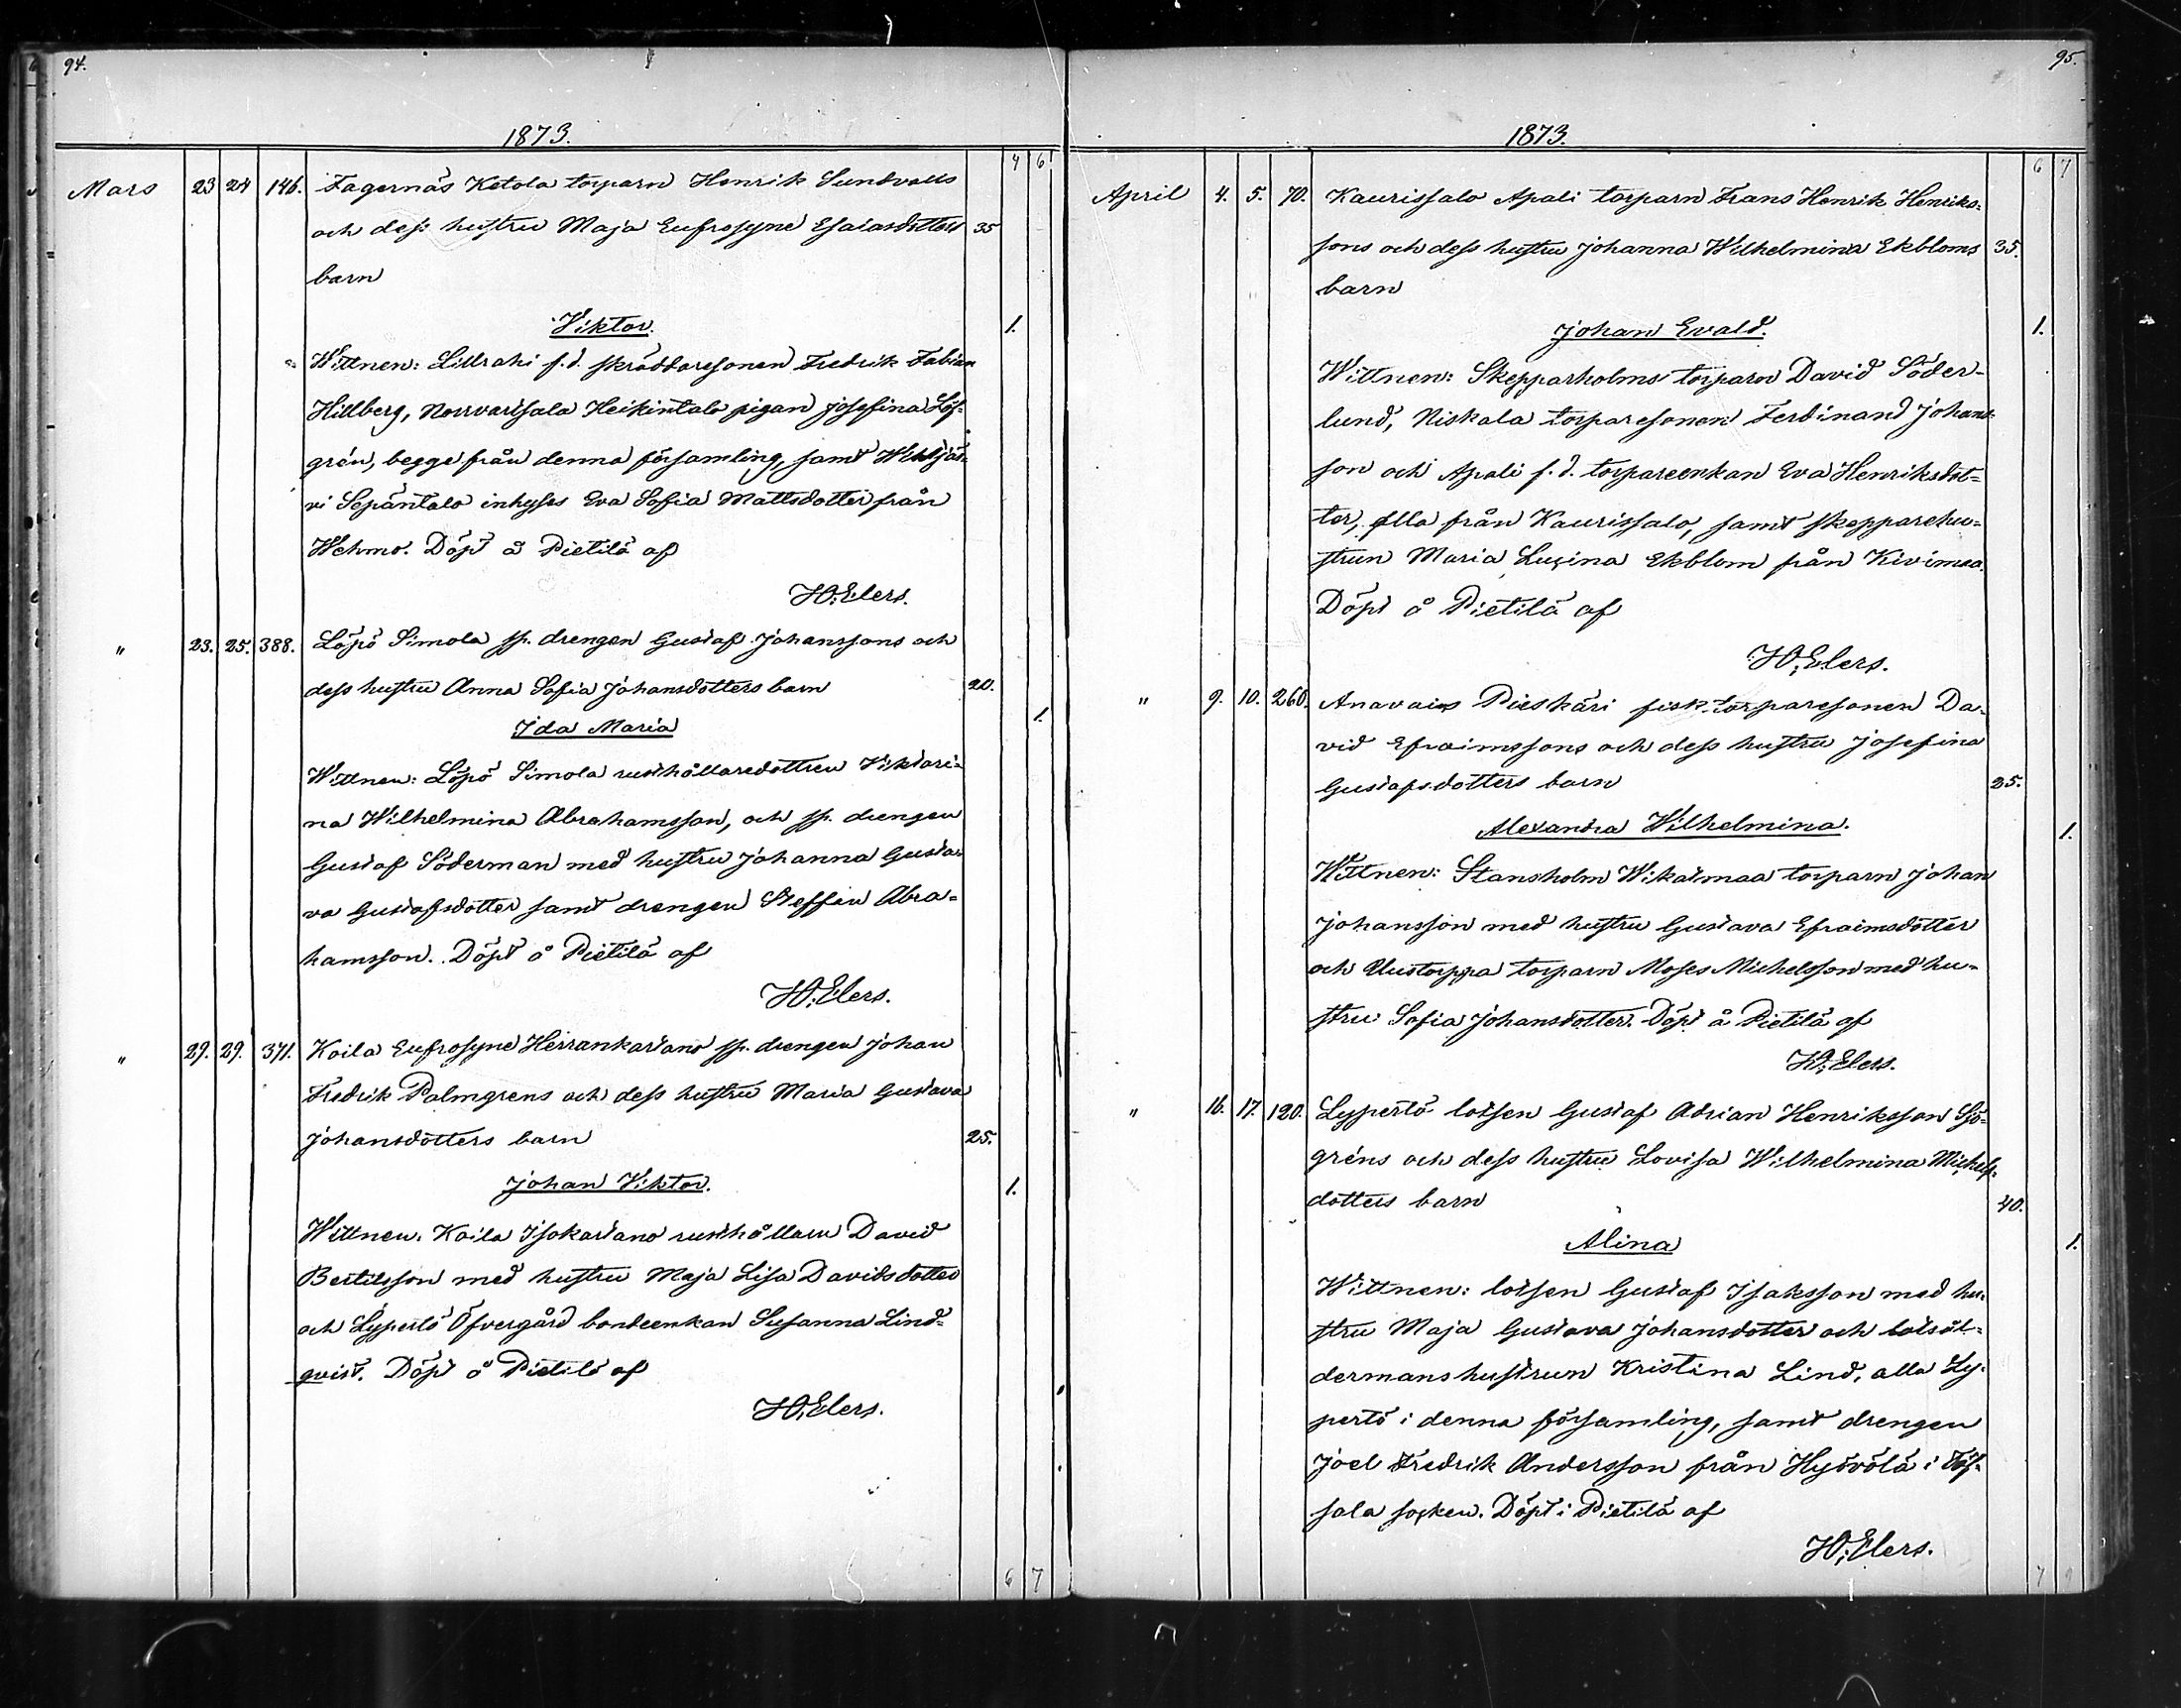 94.
1873.
4 6
Mars 23 24 146. Fagernäs Ketola torparn Henrik Sundvalls
och dess hustru Maja Eufrosyne Esaiasdotters 35
barn
Viktor. 1.
Wittnen: Lillrahi f.d. skräddaresonen Fredrik Fabian
Hillberg, Norrvartsala Heikintalo pigan Josefina Löf-
grén, begge från denna församling, samt
vi Sepäntalo inhyses Eva Sofia Mattsdotter från
Wehmo. Döpt å Pietilä af
H. Elers.
" 23. 25. 388. Löpö Simola sp. drengen Gustaf Johanssons och
dess hustru Anna Sofia Johansdotters barn 20.
Ida Maria 1.
Wittnen: Löpö Simola rusthållaredottren Viktori-
na Wilhelmina Abrahamsson, och sp. drengen
Gustaf Söderman med hustru Johanna Gusta-
va Gustafsdotter samt drengen Steffan Abra-
hamsson. Döpt å Pietilä af
H. Elers.
" 29. 29. 371. Koila Eufrosyne Herrankartano sp. drengen Johan
Fredrik Palmgrens och dess hustru Maria Gustava
Johansdotters barn 25.
Johan Viktor. 1.
Wittnen. Koila Isokartano rusthållarn David
Bertilsson med hustru Maja Lisa Davidsdotter
och Lypertö Öfvergård bondeenkan Susanna Lind-
qvist. Döpt å Pietilä af
H. Elers.
6 7
95.
1873.
6 7
April 4. 5. 70. Kaurissalo Apali torparn Frans Henrik Henriks-
sons och dess hustru Johanna Wilhelmina Ekbloms 35.
barn
Johan Evald. 1.
Wittnen: Skepparholms torparn David Söder-
lund, Niskala torparesonen Ferdinand Johans-
son och Apali f.d. torpareenkan Eva Henriksdot-
ter, alla från Kaurissalo, samt skepparehu-
strun Maria Lucina Ekblom från Kivimaa.
Döpt å Pietilä af
H. Elers.
" 9. 10. 260. Anavais Pieskäri fisk. torparesonen Da-
vid Efraimssons och dess hustru Josefina
Gustafsdotters barn 25.
Alexandra Wilhelmina. 1.
Wittnen: Stansholm Wikatmaa torparn Johan
Johansson med hustru Gustava Efraimsdotter
och Uustorppa torparn Moses Michelsson med hu-
stru Sofia Johansdotter. Döpt å Pietilä af
H. Elers.
" 16. 17. 120. Lypertö lotsen Gustaf Adrian Henriksson Sjö-
gréns och dess hustru Lovisa Wilhelmina Michels-
dotters barn 40.
Alina 1.
Wittnen: lotsen Gustaf Isaksson med hu-
stru Maja Gustava Johansdotter och lotsål-
dermanshustrun Kristina Lind, alla Ly-
pertö i denna församling, samt drengen
Joel Fredrik Andersson från Hyövölä i Töf-
sala socken. Döpt i Pietilä af
H. Elers.
7 9